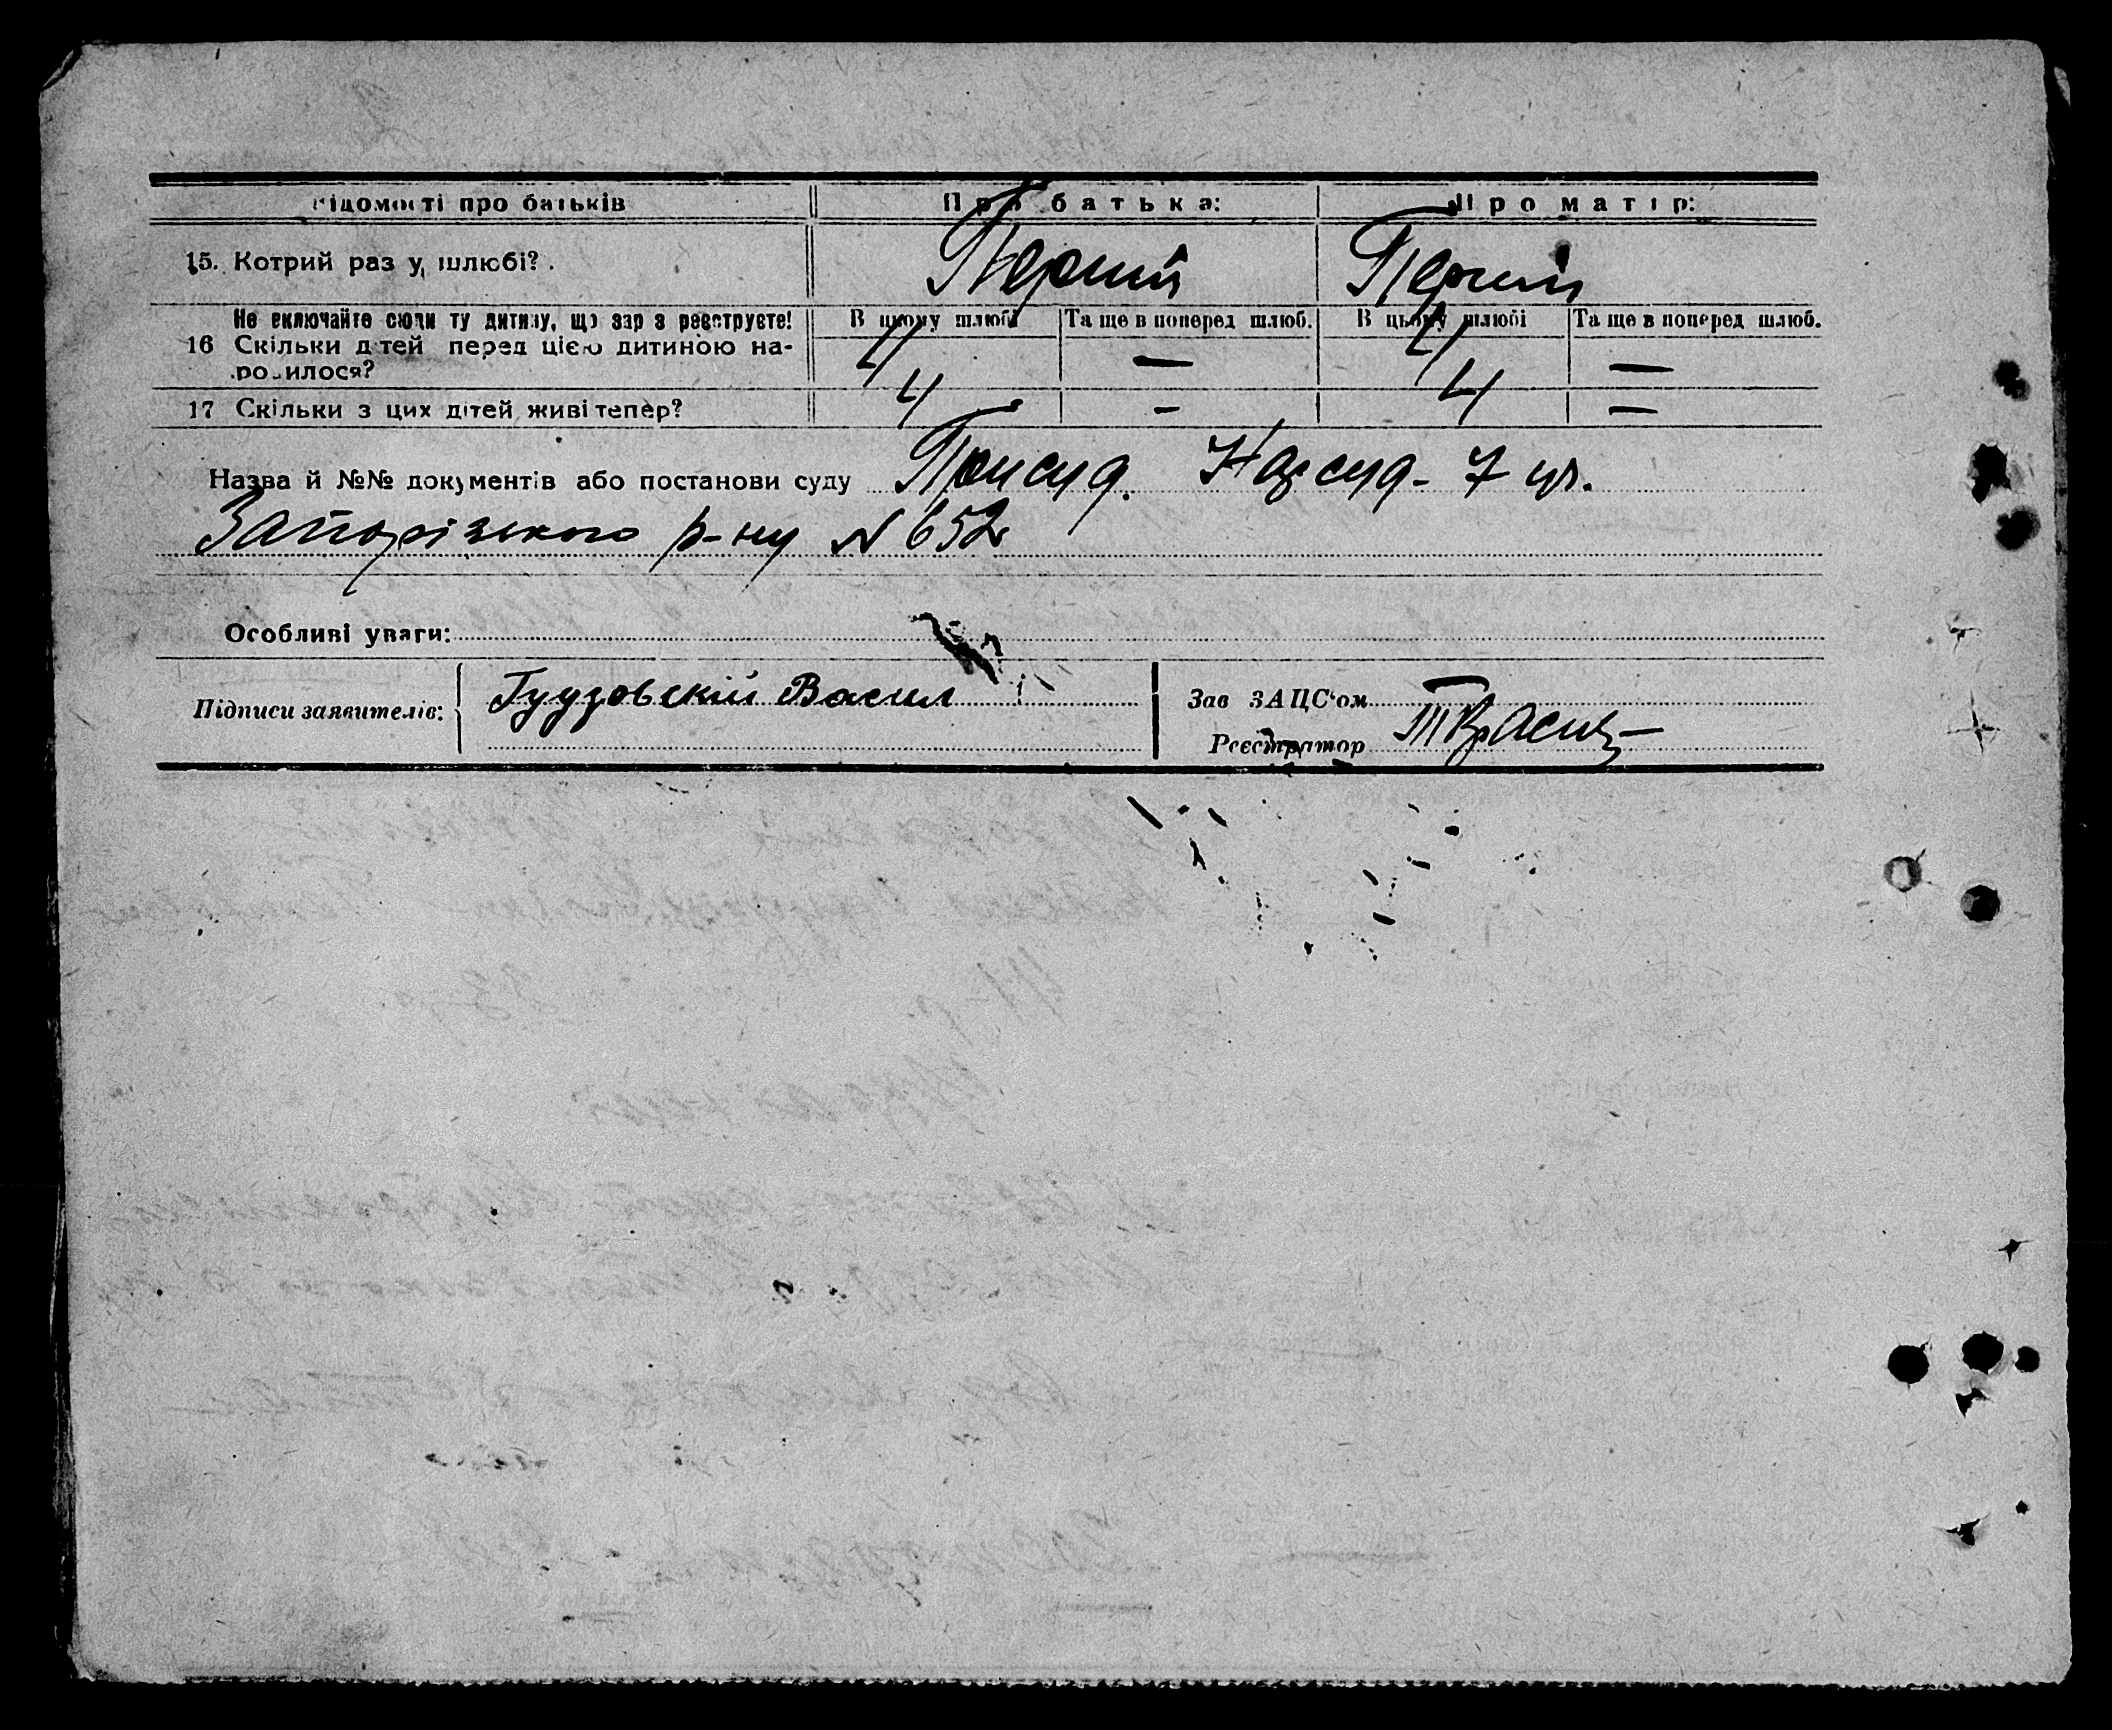 Відомості про батьків Про батька: Про матір:
15. Котрий раз у шлюбі? Перший Перший
Не включайте сюди ту дитину, що зараз реєструєте! В цьому шлюбі Та ще в поперед шлюб. В цьому шлюбі Та ще в поперед шлюб.
16 Скільки дітей перед цією дитиною на-
родилося? 4 — 4 —
17 Скільки з цих дітей живі тепер? 4 - 4 —
Назва й №№ документів або постанови суду Присуд. Нарсуд- 7 
Запорізького р-ну N 652
Особливі уваги:
Підписи заявителів: Гудзовскій Васил
Зав ЗАЦС'ом
Реєстратор